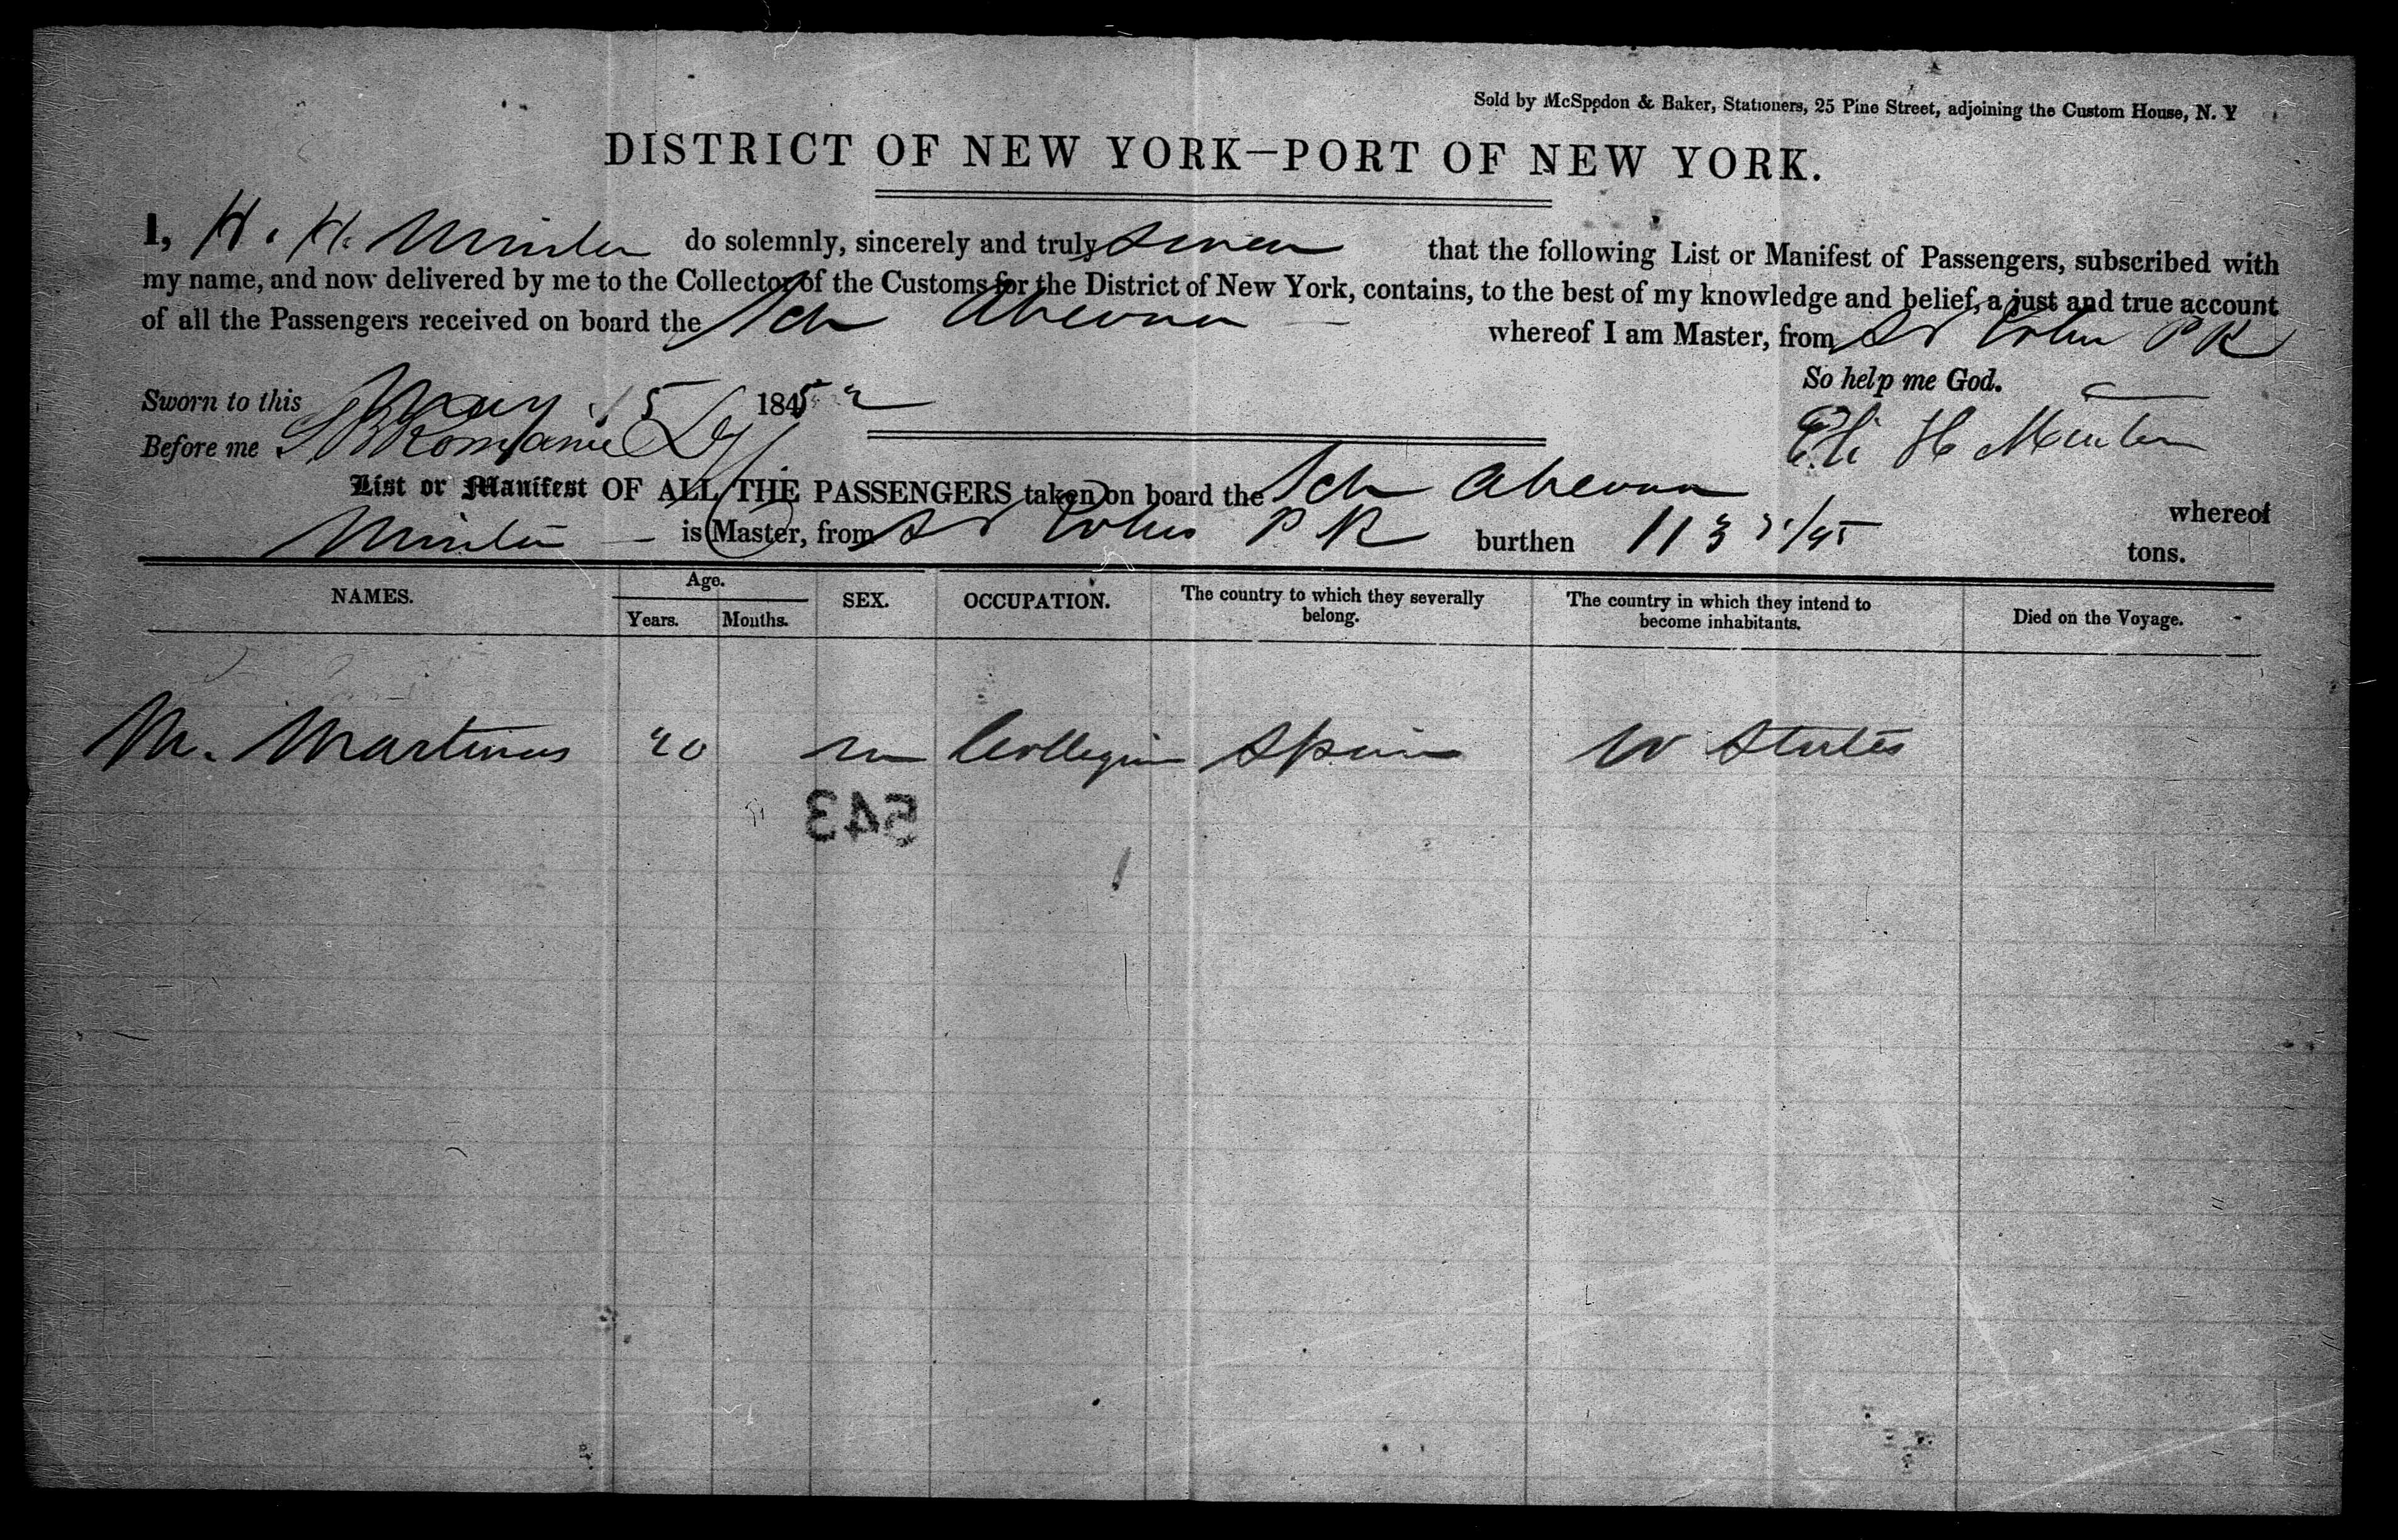 Sold by McSpedon & Baker, Stationers, 25 Pine Street, adjoining the Custom House, N. Y
DISTRICT OF NEW YORK—PORT OF NEW YORK.
I, H. H. Minter do solemnly, sincerely and truly swear that the following List or Manifest of Passengers, subscribed with
my name, and now delivered by me to the Collector of the Customs for the District of New York, contains, to the best of my knowledge and belief, a just and true account
of all the Passengers received on board the Sch whereof I am Master, from St Johns P R
So help me God.
Sworn to this May 15 1852
Before me
Eli H Minter
List or Manifest OF ALL THE PASSENGERS taken on board the Sch whereof
Minter is Master, from St Johns P R burthen 113 /95 tons.
NAMES. Age. Years. Months. SEX. OCCUPATION. The country to which they severally belong. The country in which they intend to become inhabitants. Died on the Voyage.
M. Martinus 20 m Collegian Spain U States
543